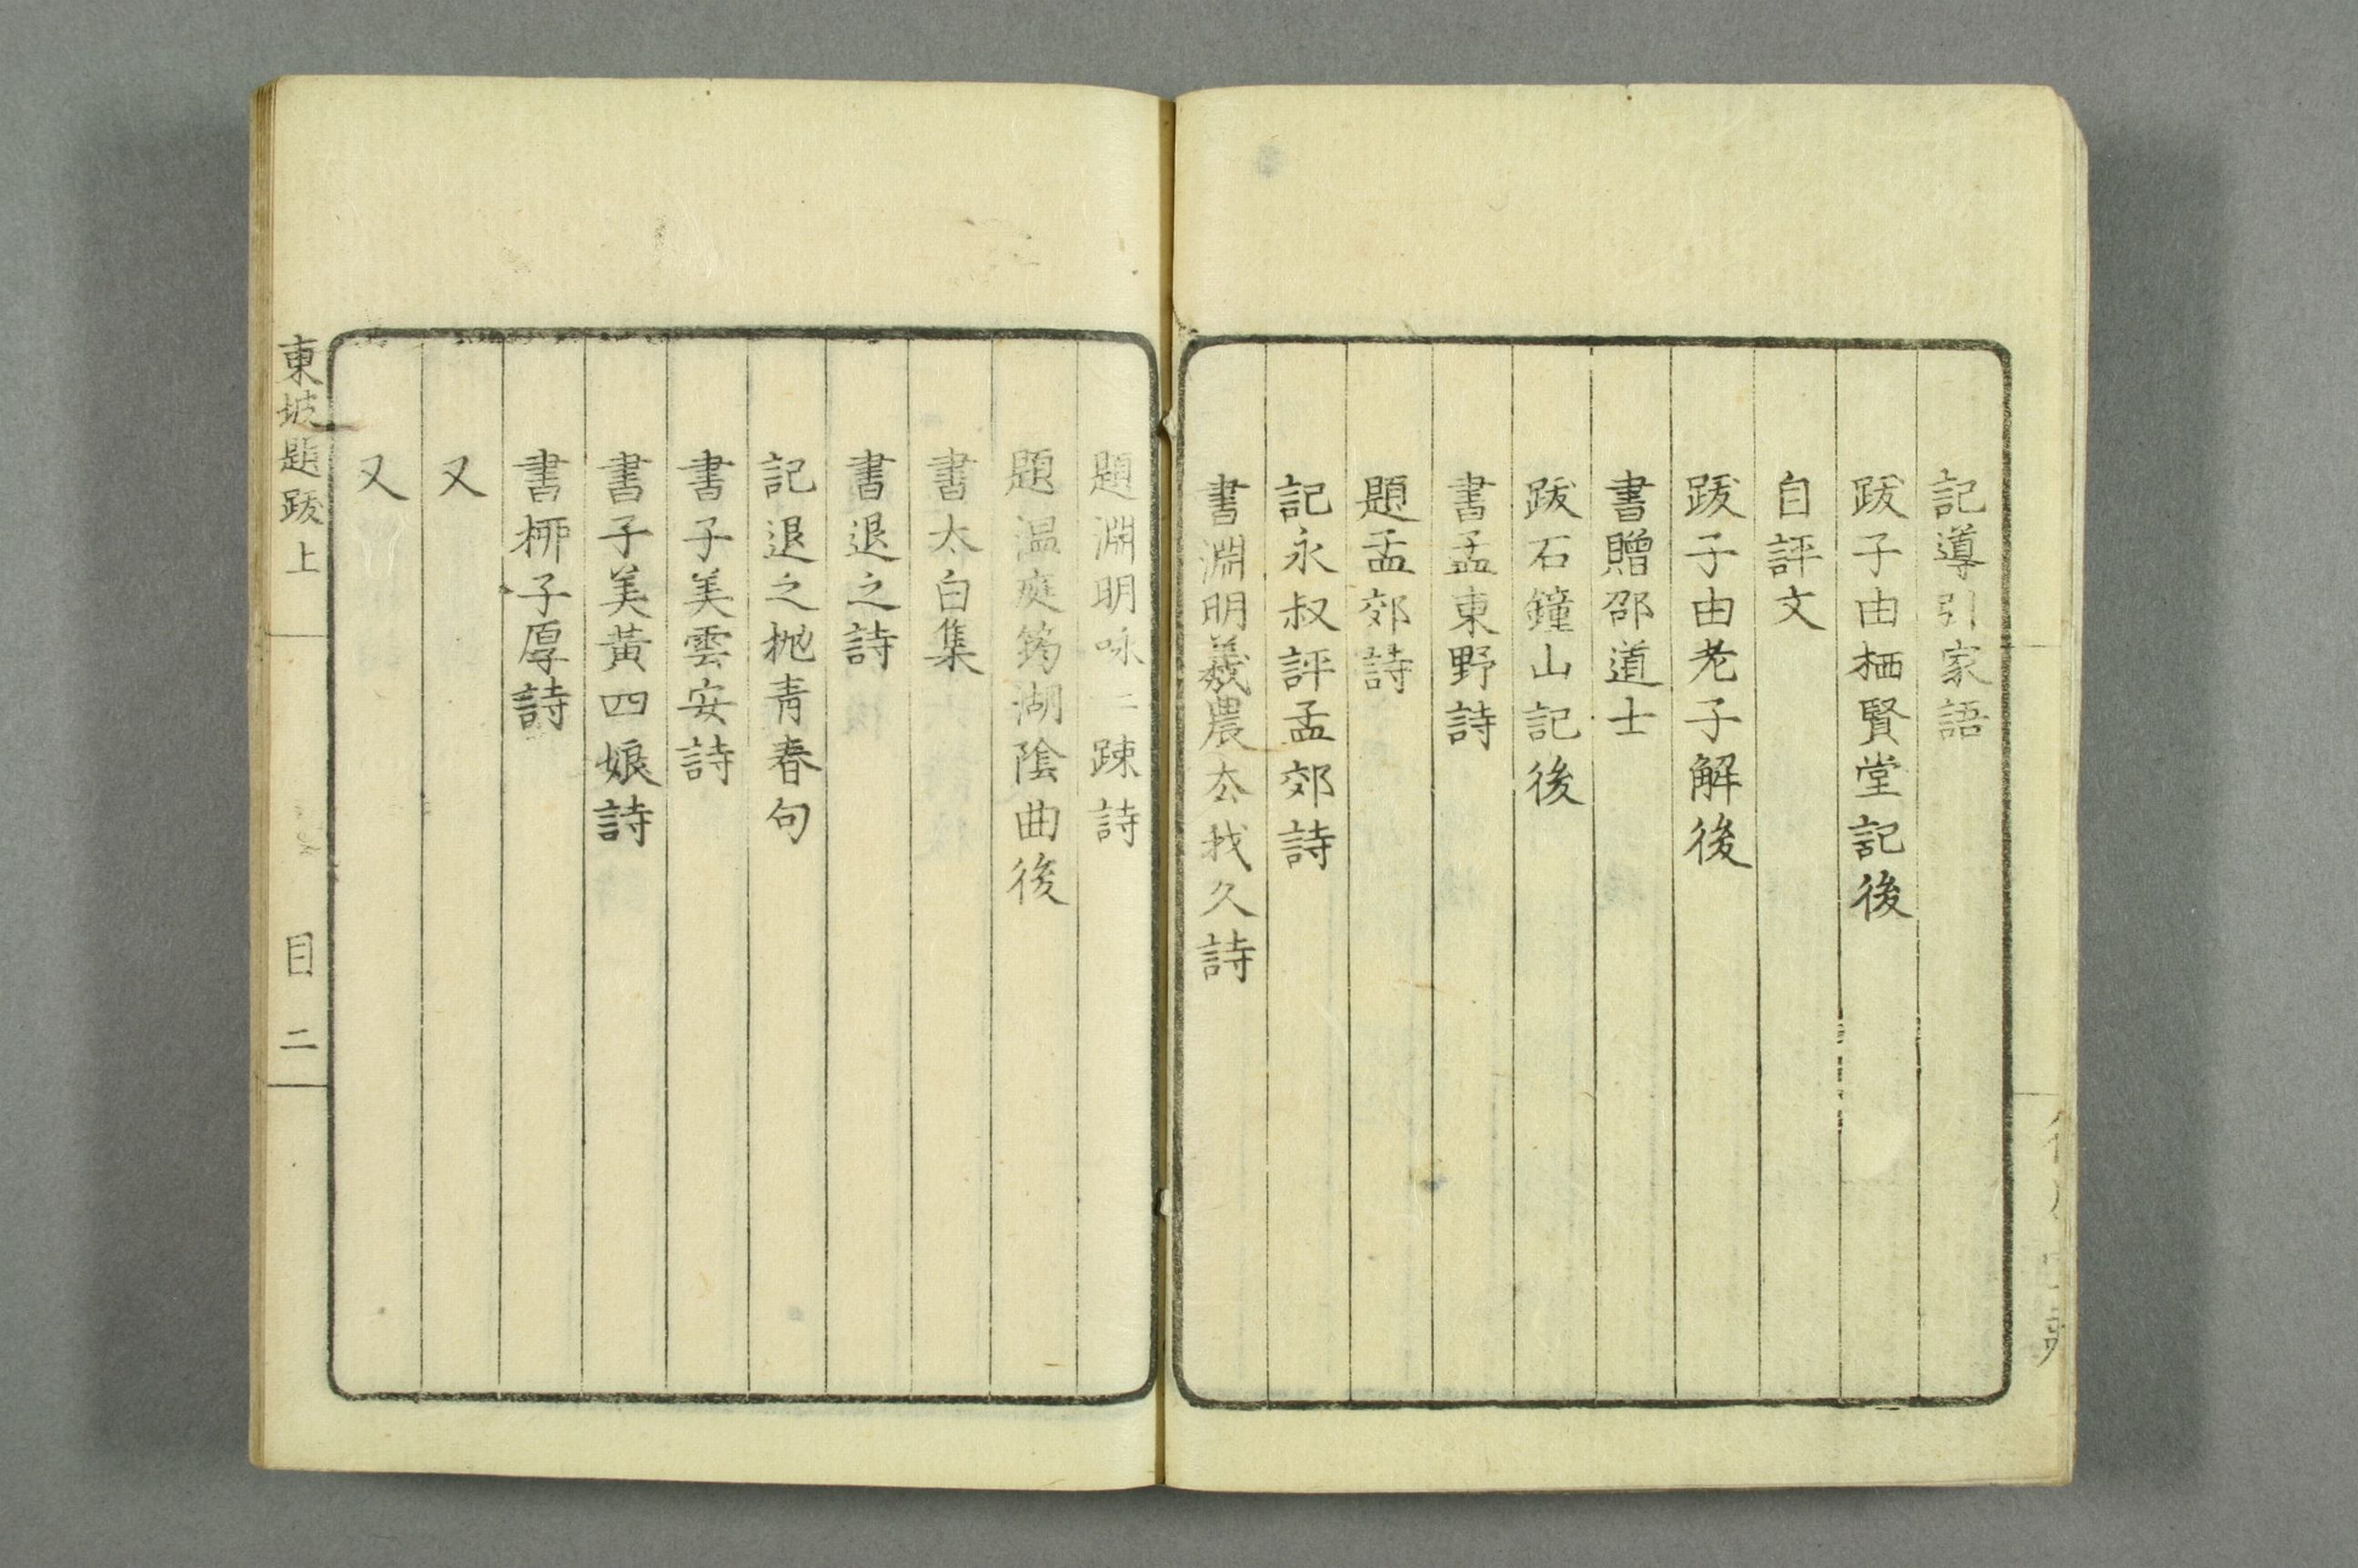 記導引家語
跋子由栖賢堂記後
自評文
跋子由老子解後
書贈邵道士
跋石鐘山記後
書孟東野詩
題孟郊詩
記永叔評孟郊詩
書淵明羲農去我久詩
題淵明咏二踈詩
題温庭筠湖陰曲後
書太白集
書退之詩
記退之抛青春句
書子美雲安詩
書子美黃四娘詩
書桺子厚詩
又
又
東坡題跋上
目
二